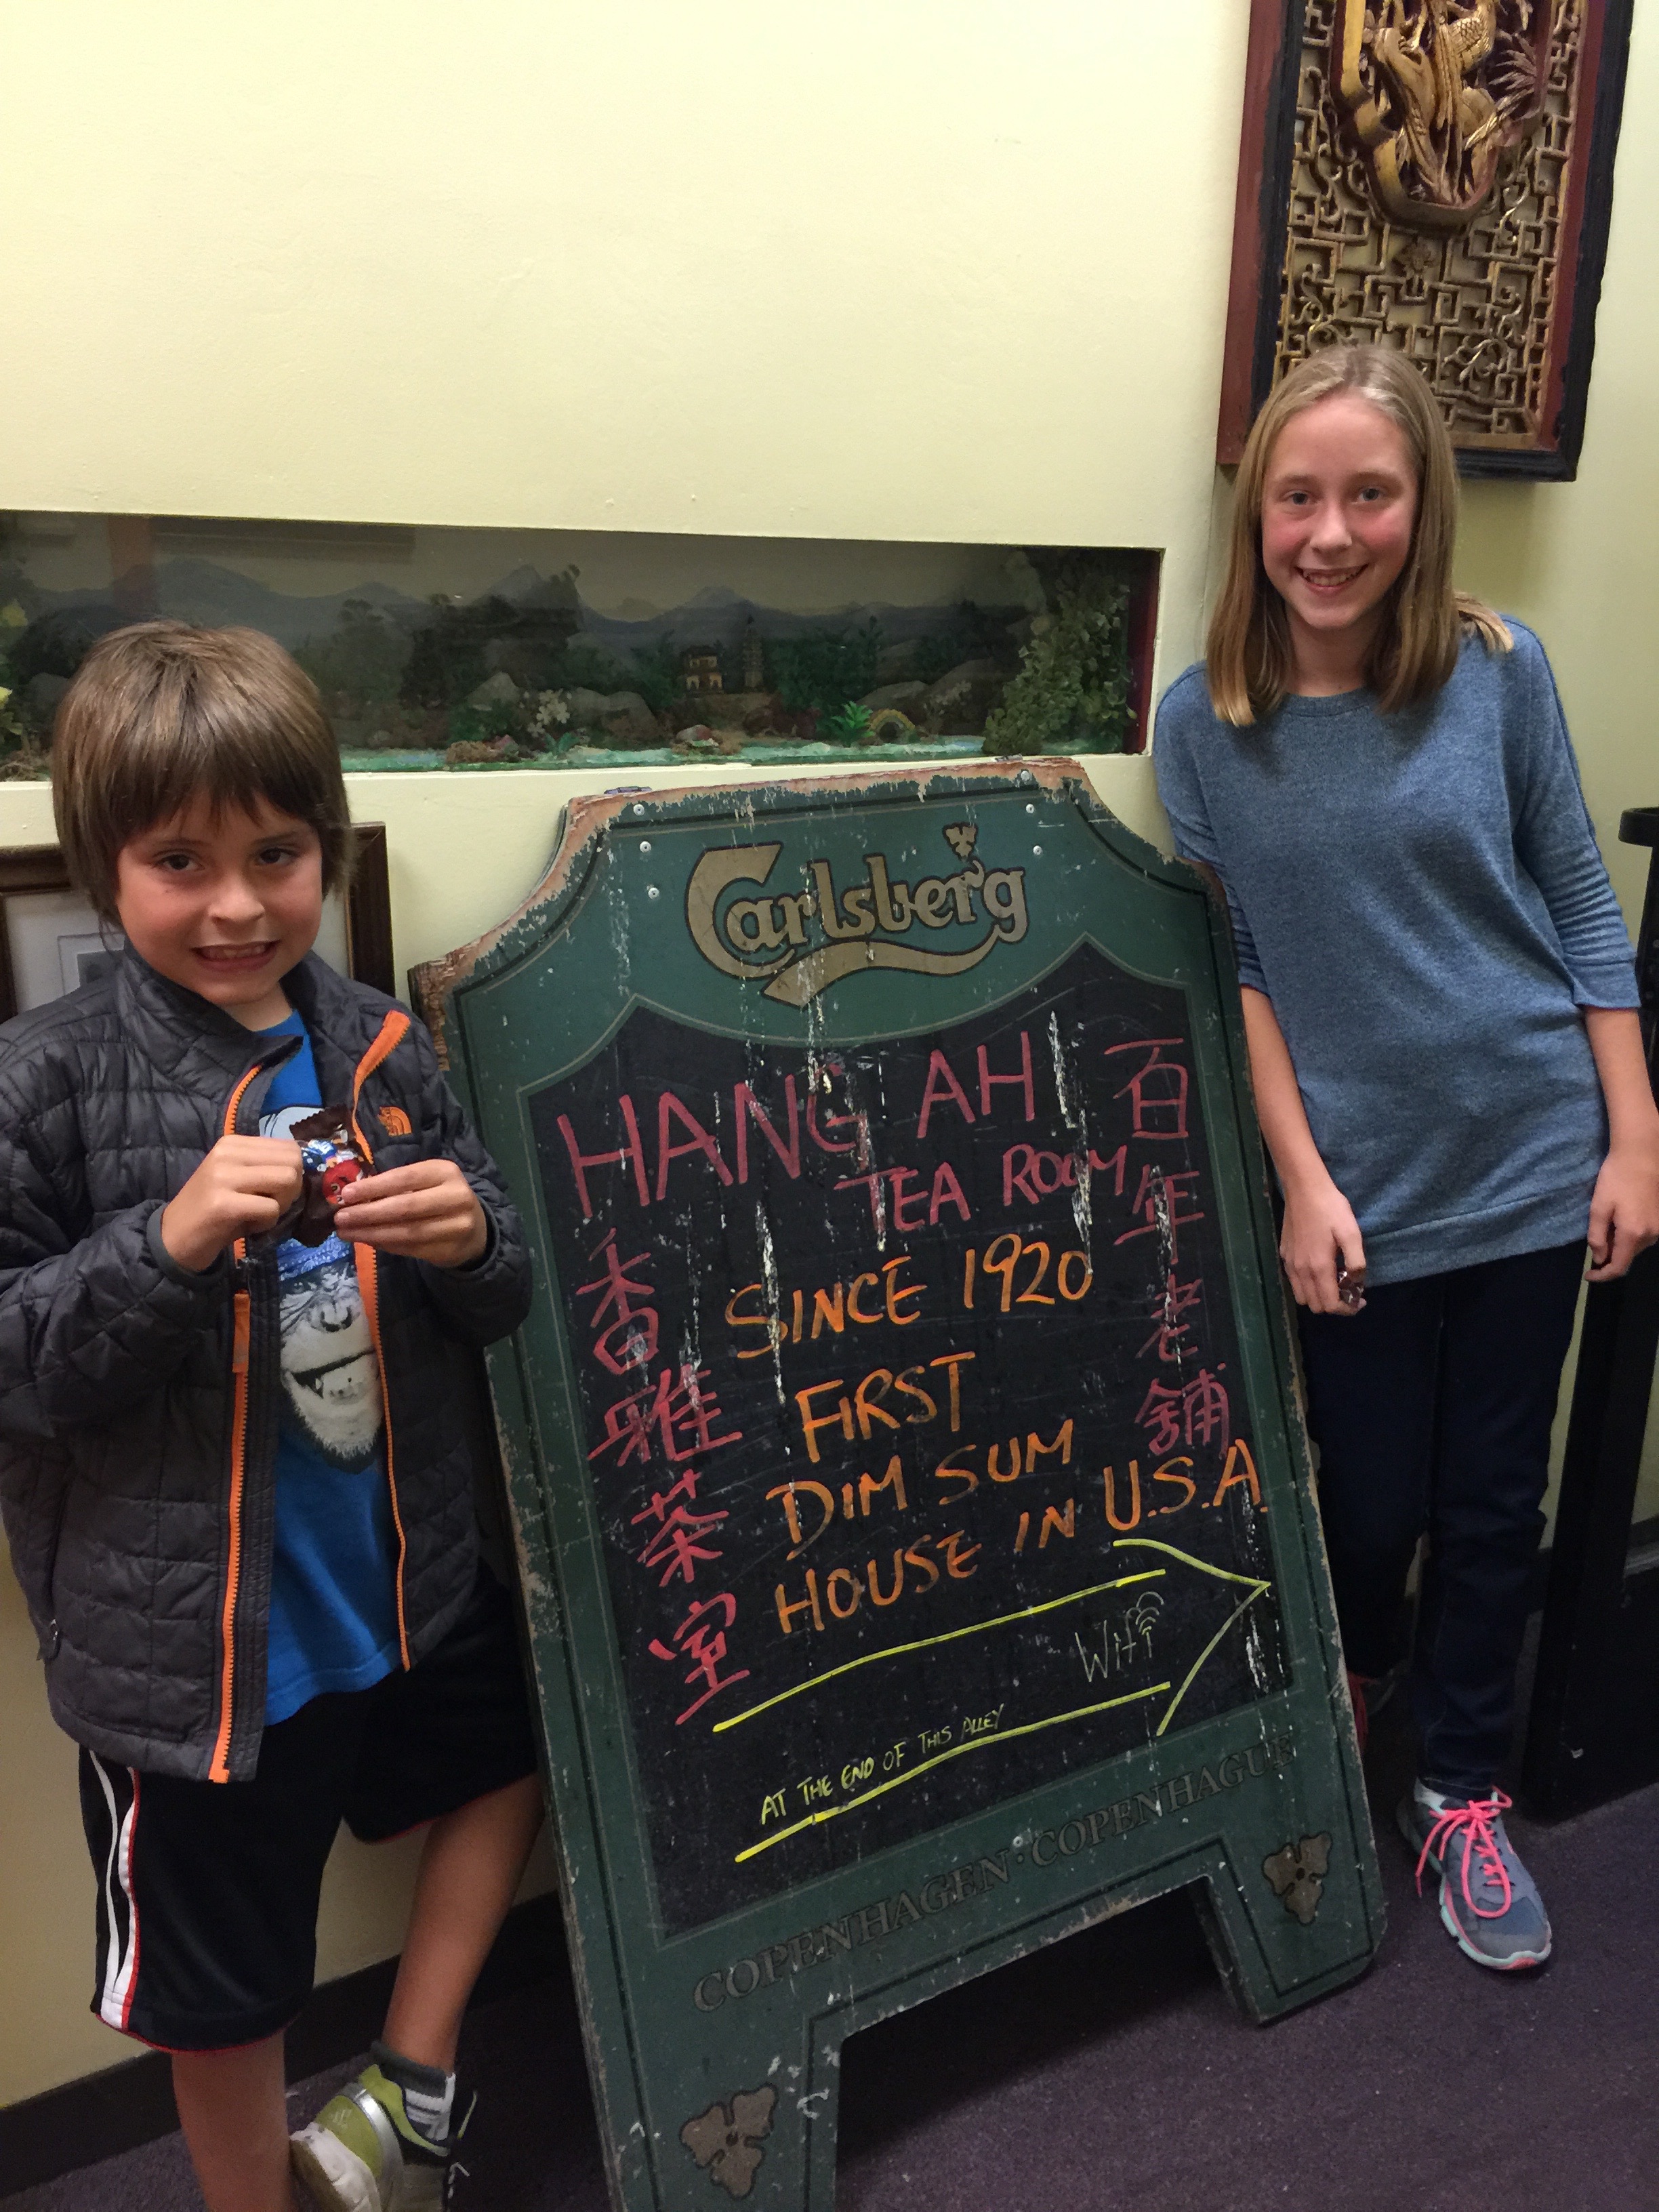 Carlsberg
HANG AH
TEA ROOM
SINCE 1920
FIRST
DIM SUM
HOUSE IN U.S.A.
Wifi
AT THE END OF THIS ALLEY
香雅茶室
百年老舖
COPENHAGEN · COPENHAGUE